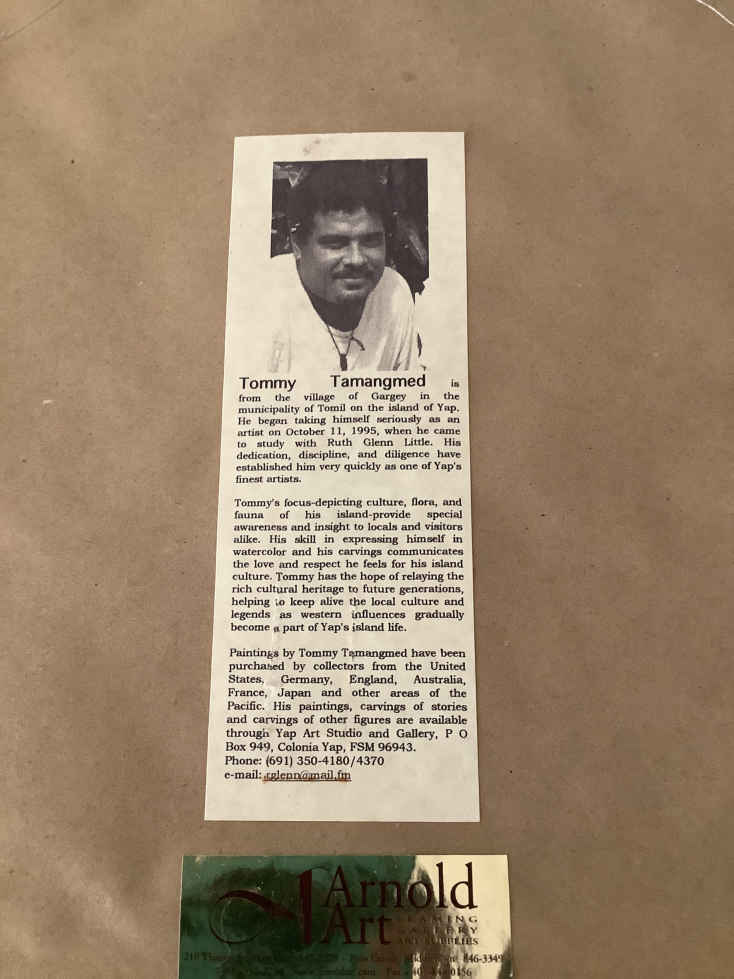 Tommy Tamangmed is
from the village of Gargey in the
municipality of Tomil on the island of Yap.
He began taking himself seriously as an
artist on October 11, 1995, when he came
to study with Ruth Glenn Little. His
dedication, discipline, and diligence have
established him very quickly as one of Yap's
finest artists.
Tommy's focus-depicting culture, flora, and
fauna of his island-provide special
awareness and insight to locals and visitors
alike. His skill in expressing himself in
watercolor and his carvings communicates
the love and respect he feels for his island
culture. Tommy has the hope of relaying the
rich cultural heritage to future generations,
helping to keep alive the local culture and
legends as western influences gradually
become a part of Yap's island life.
Paintings by Tommy Tamangmed have been
purchased by collectors from the United
States, Germany, England, Australia,
France, Japan and other areas of the
Pacific. His paintings, carvings of stories
and carvings of other figures are available
through Yap Art Studio and Gallery, P O
Box 949, Colonia Yap, FSM 96943.
Phone: (691) 350-4180/4370
e-mail: rglenn@mail.fm
Arnold
Art
FRAMING
GALLERY
ART SUPPLIES
210 846-3349
Fax